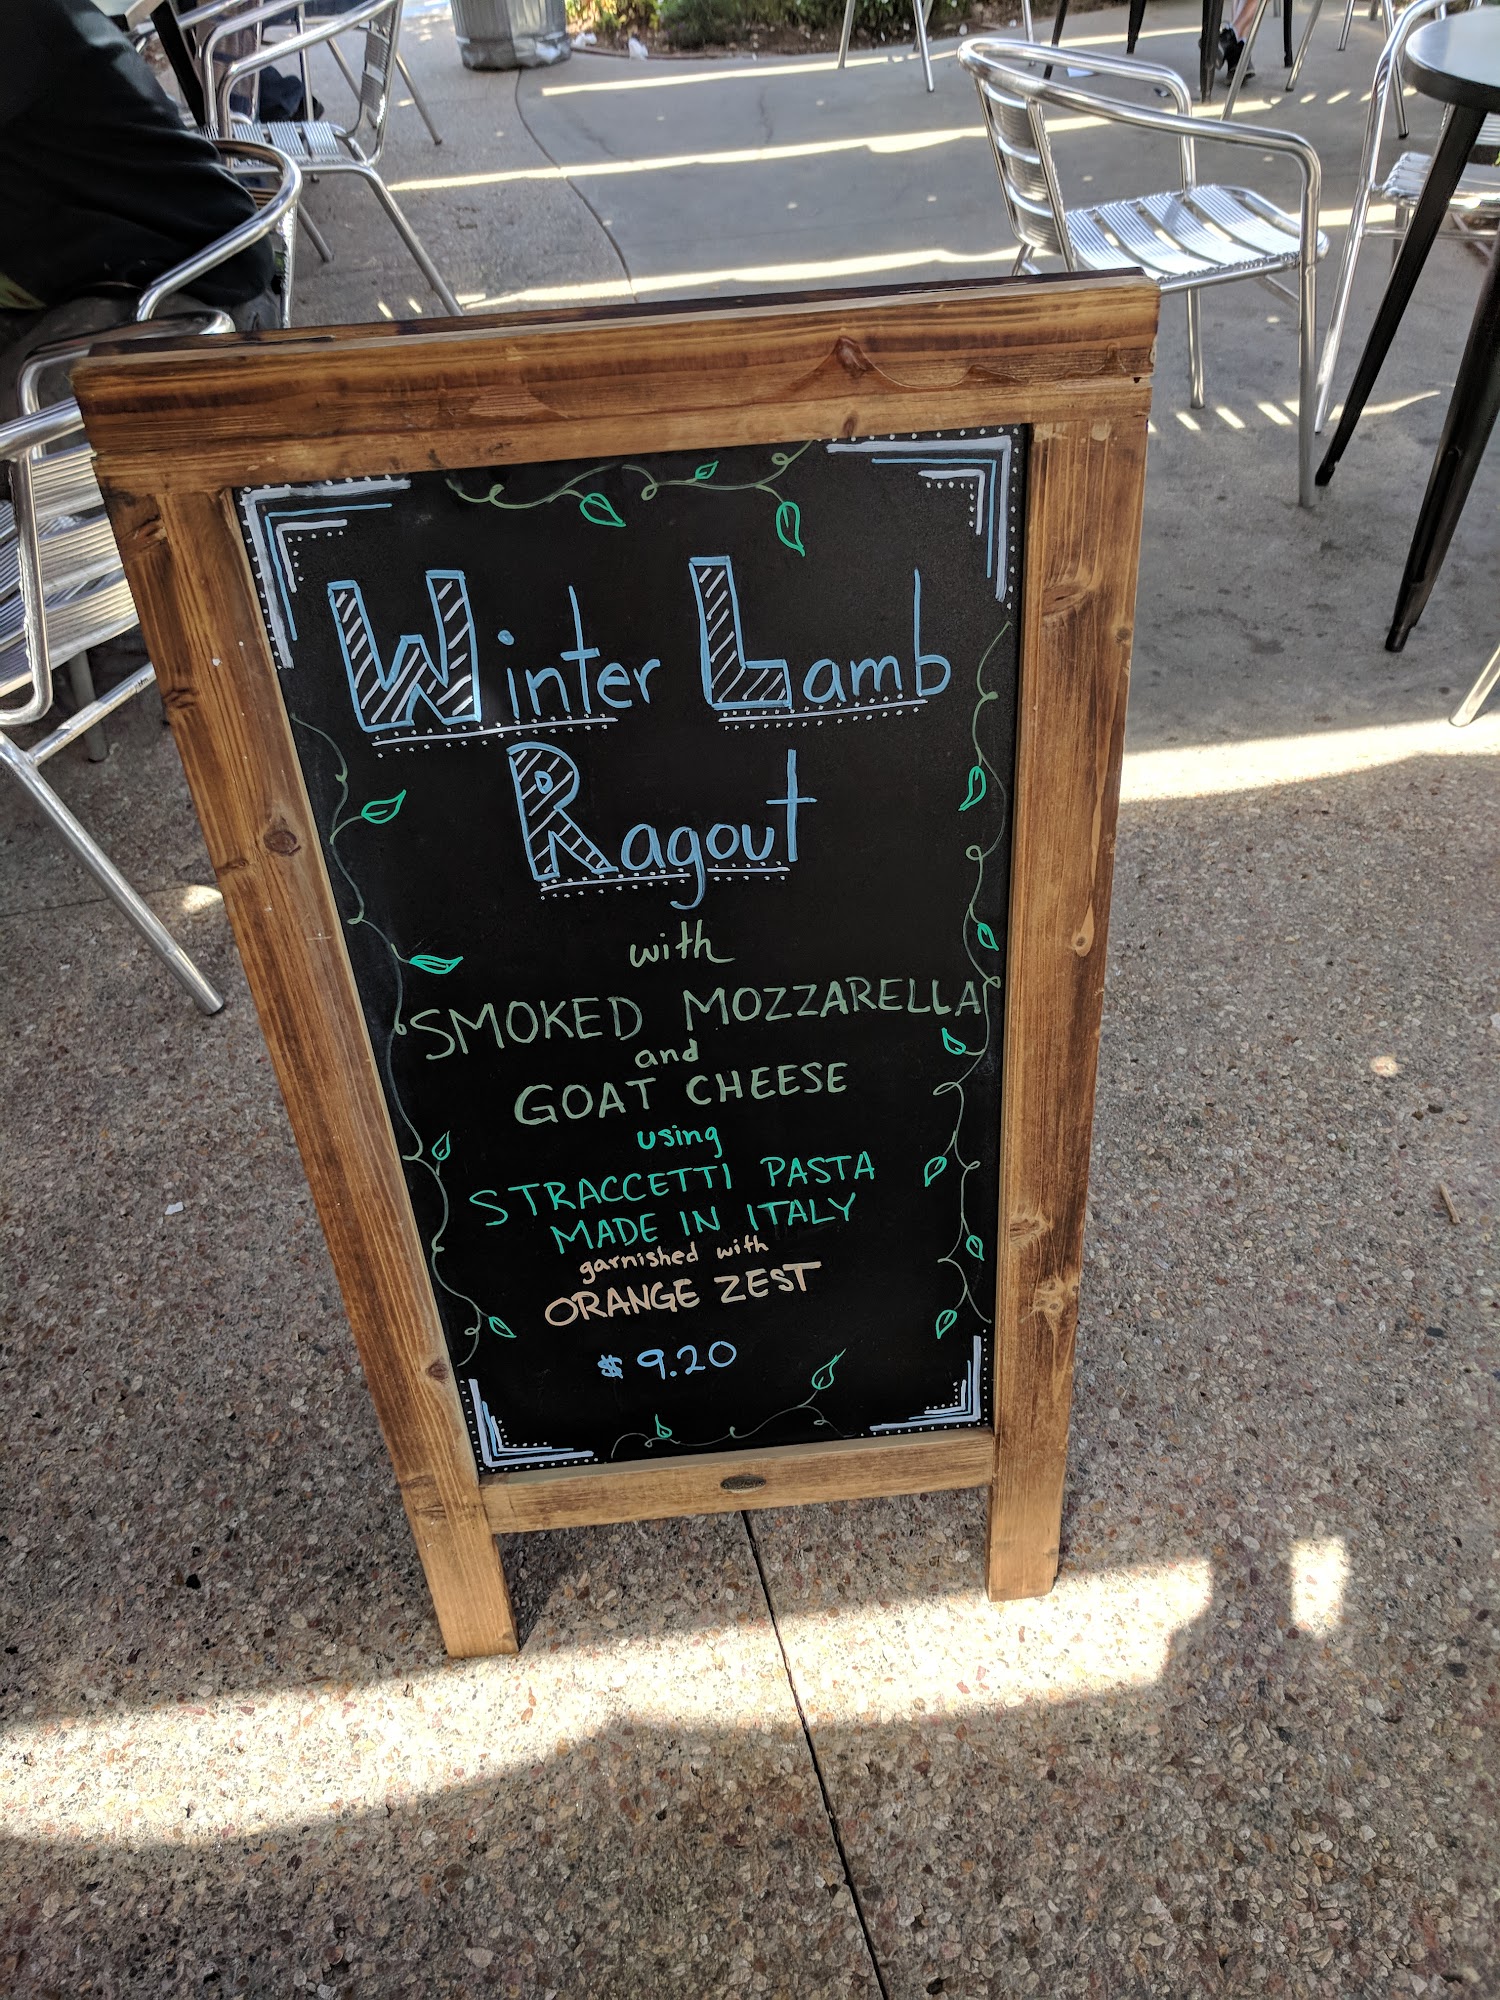 Winter Lamb
Ragout
with
SMOKED MOZZARELLA
and
GOAT CHEESE
using
STRACCETTI PASTA
MADE IN ITALY
garnished with
ORANGE ZEST
$9.20